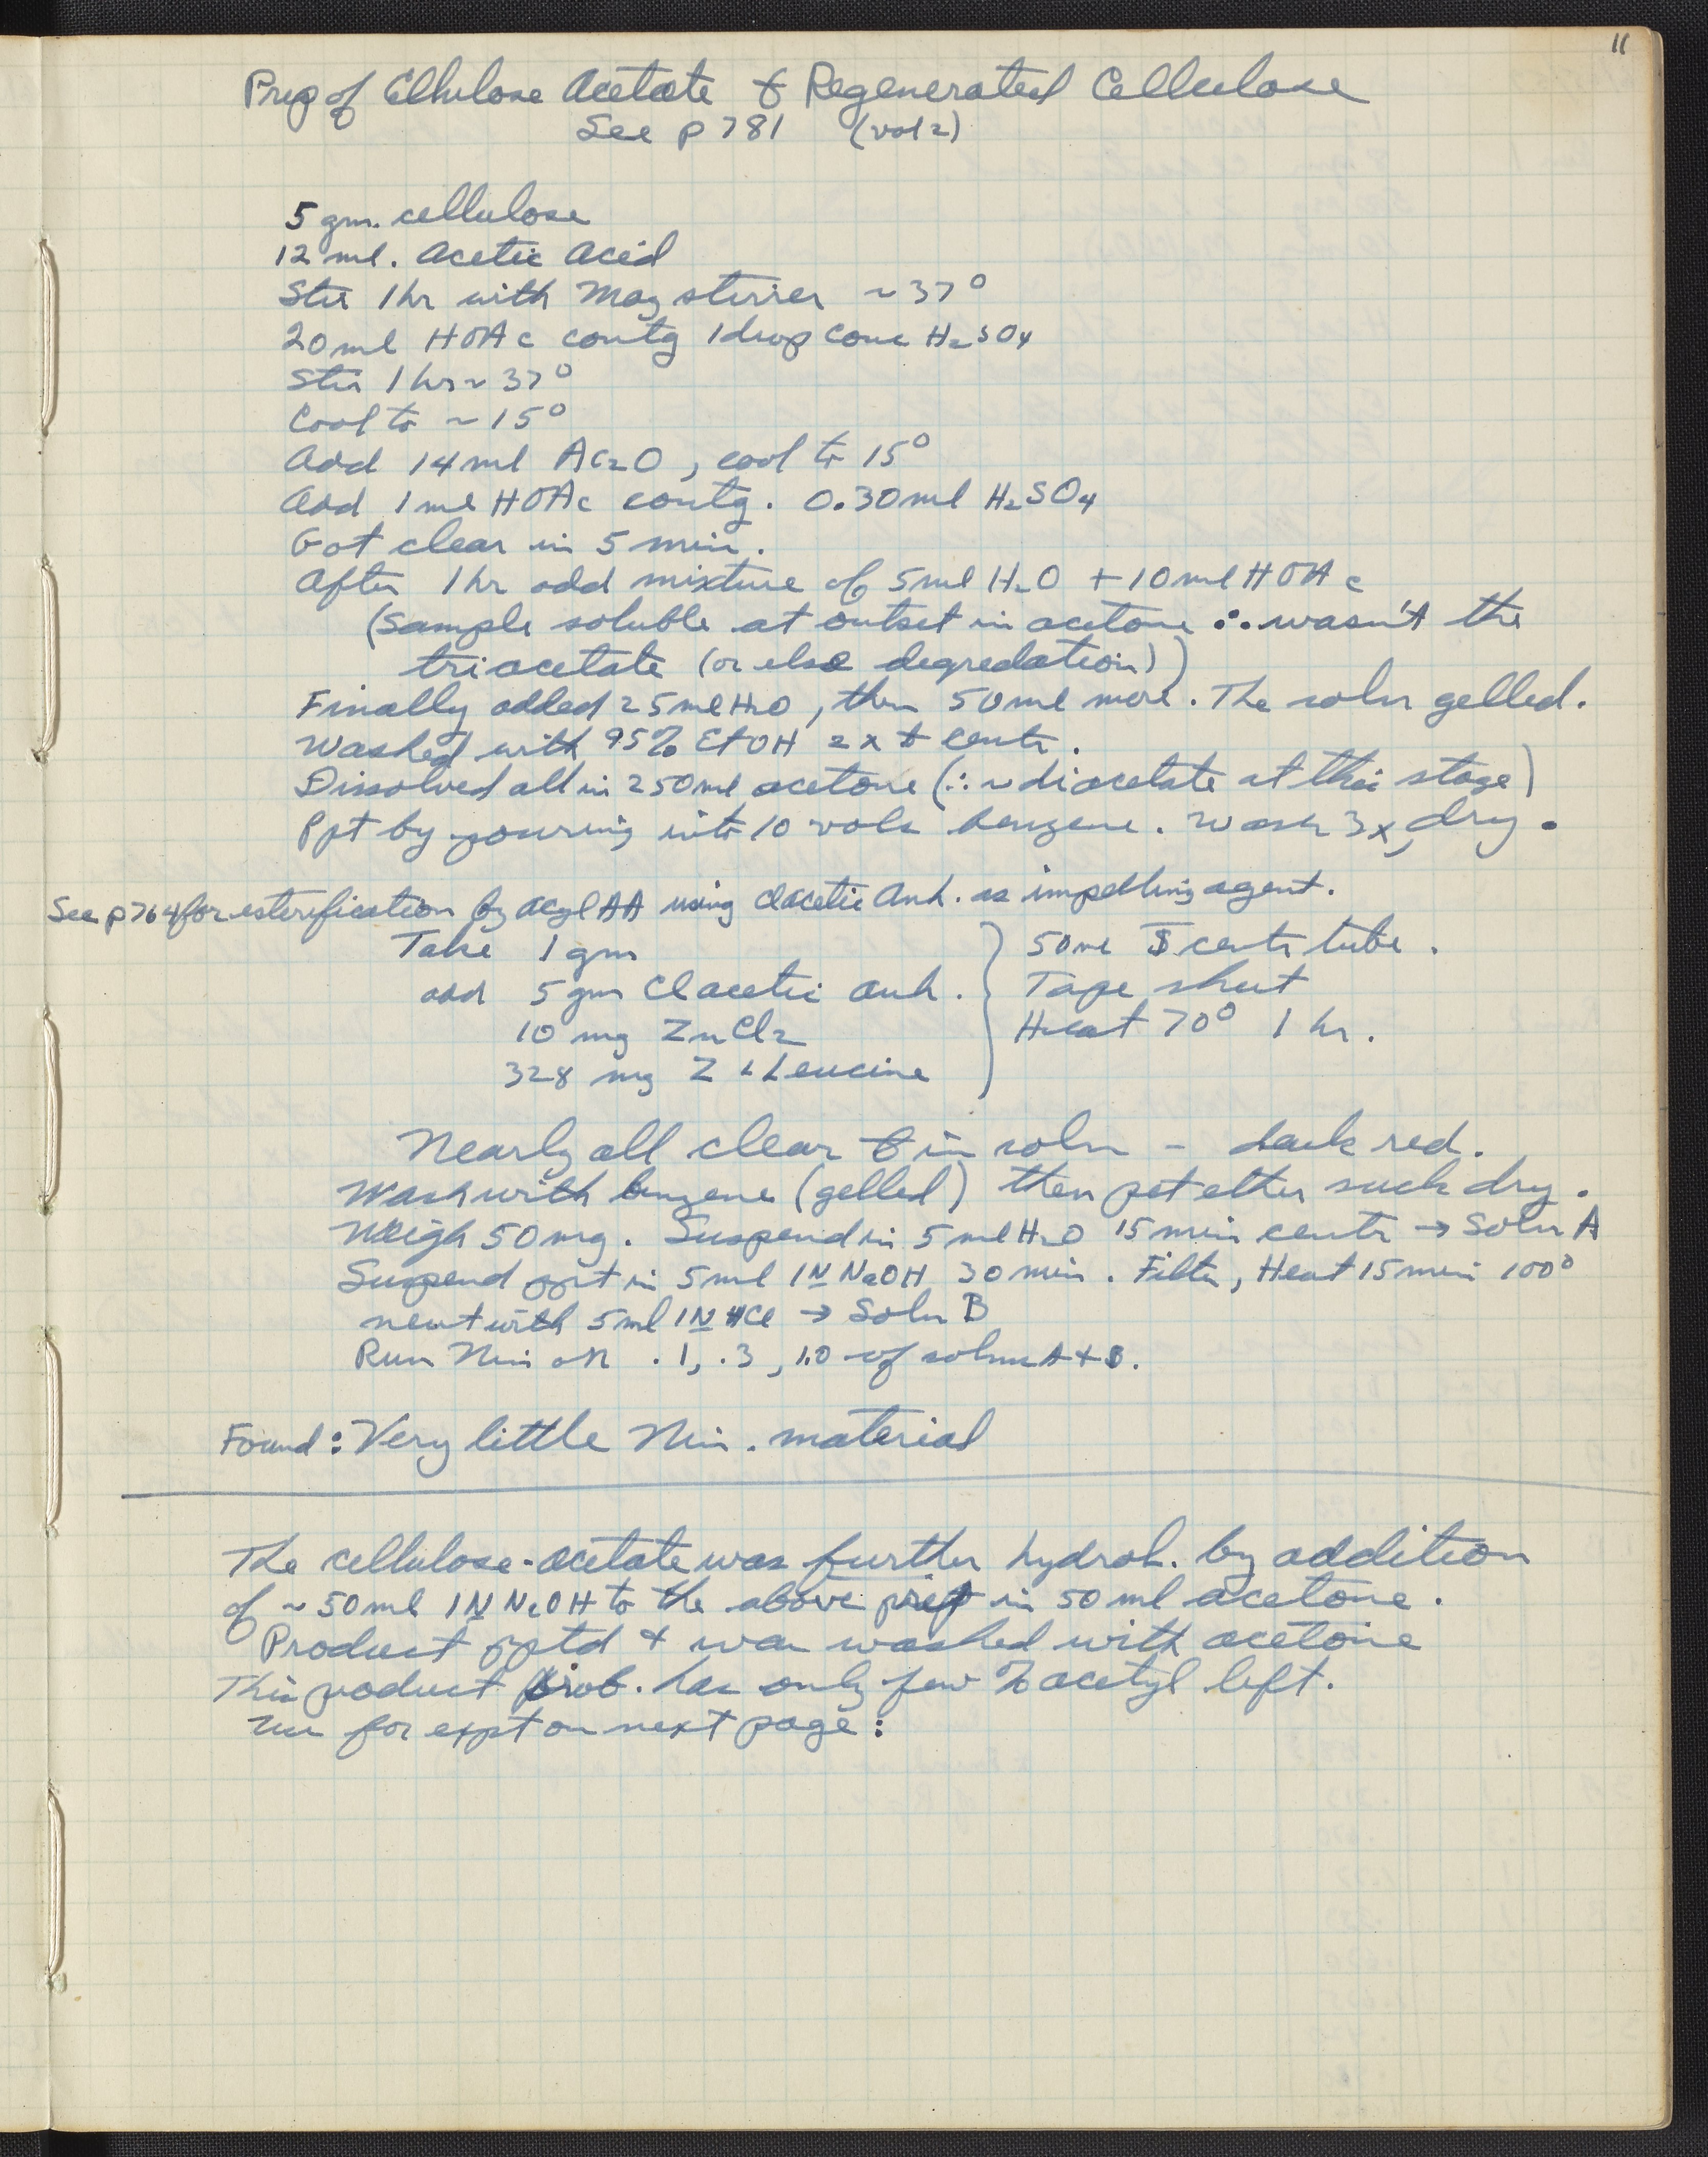 11
Prep of Cellulose Acetate & Regenerated Cellulose
See p 781 (vol 2)
5 gm. cellulose
12 ml. Acetic Acid
Stir 1 hr with Mag stirrer ~ 37°
20 ml HOAc contg 1 drop conc H2SO4
Stir 1 hr ~ 37°
Cool to ~ 15°
Add 14 ml Ac2O, cool to 15°
Add 1 ml HOAc contg. 0.30 ml H2SO4
Got clear in 5 min.
After 1 hr add mixture of 5 ml H2O + 10 ml HOAc
(Sample soluble at outset in acetone ∴ wasn't the
triacetate (or else degredation))
Finally added 25 ml H2O, then 50 ml more. The soln gelled.
Washed with 95% EtOH 2x & centr.
Dissolved all in 250 ml acetone (∴ ~ diacetate at this stage)
Ppt by pouring into 10 vols benzene. Wash 3x, dry.
See p 764 for esterification by acyl AA using Clacetic Anh. as impelling agent.
Take 1 gm
add 5 gm Clacetic anh.
10 mg ZnCl2
328 mg Z L Leucine
50 ml centr tube.
Tape shut
Heat 70° 1 hr.
Nearly all clear & in soln - dark red.
Wash with benzene (gelled) then pet ether suck dry.
Weigh 50 mg. Suspend in 5 ml H2O 15 min centr → Soln A
Suspend ppt in 5 ml 1N NaOH 30 min. Filter, Heat 15 min 100°
neut with 5 ml 1N HCl → Soln B
Run Nin on .1, .3, 1.0 of solns A + B.
Found: Very little Nin. material
The cellulose-acetate was further hydrol. by addition
of ~ 50 ml 1N NaOH to the above prep in 50 ml acetone.
Product pptd & was washed with acetone
This product prob. has only few % acetyl left.
Use for expt on next page: